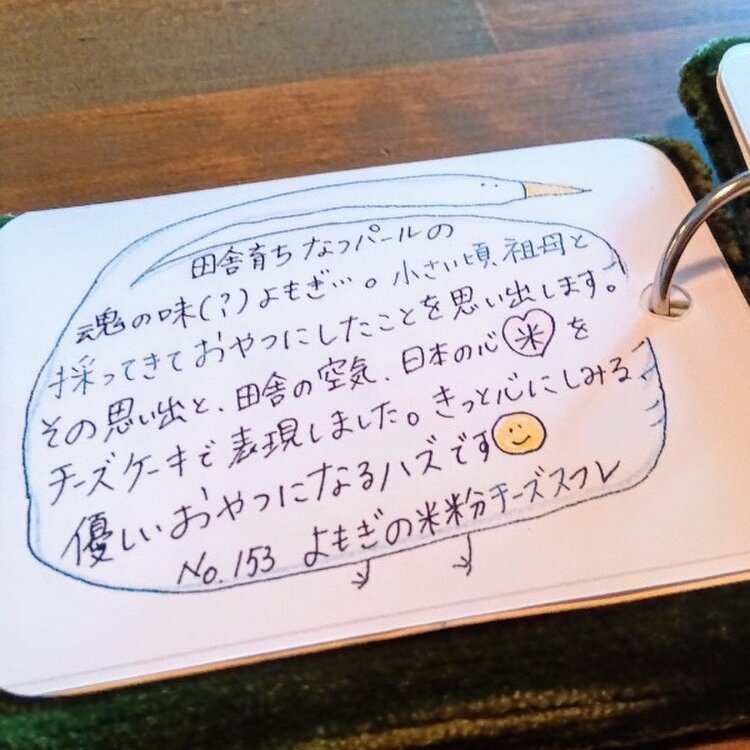 田舎育ちなつパールの
魂の味(?)よもぎ…。小さい頃、祖母と
採ってきておやつにしたことを思い出します。
その思い出と、田舎の空気、日本の心米を
チーズケーキで表現しました。きっと心にしみる、
優しいおやつになるハズです
No.153 よもぎの米粉チーズスフレ